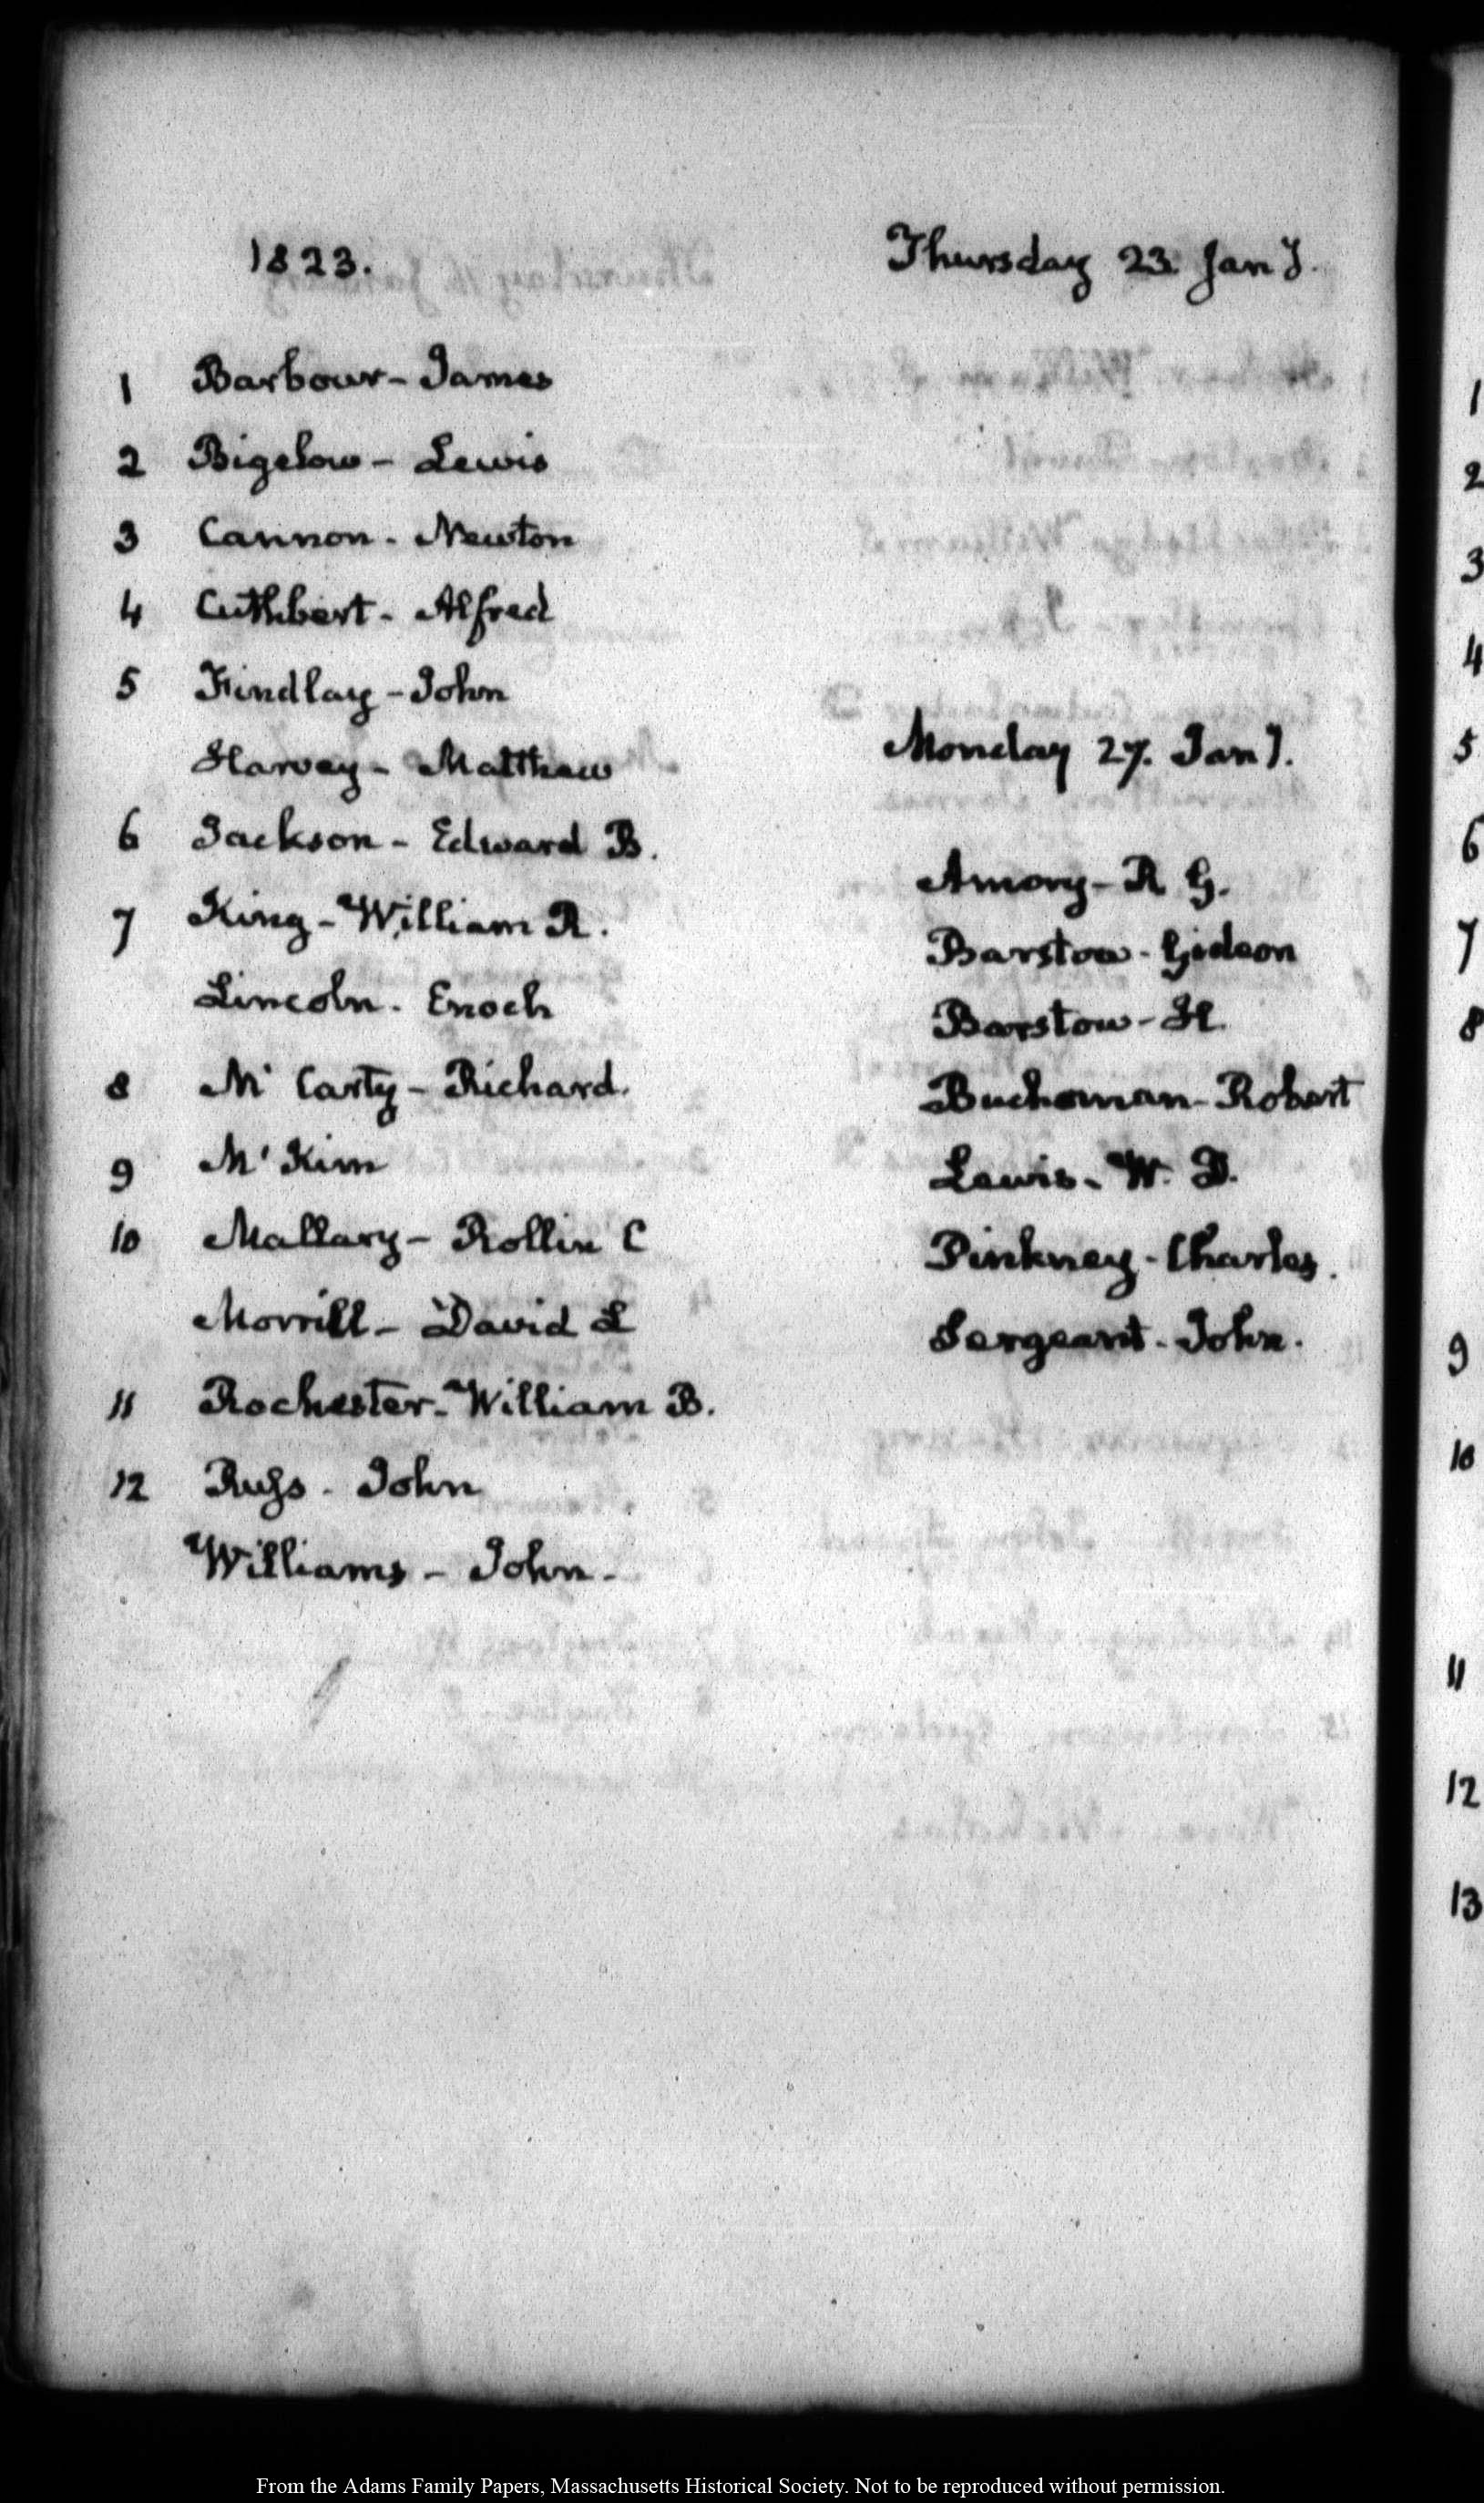 1823.
Thursday 23. Jany.
1 Barbour - James
2 Bigelow - Lewis
3 Cannon - Newton
4 Cuthbert - Alfred
5 Findlay - John
Harvey - Matthew
6 Jackson - Edward B.
7 King - William R.
Lincoln - Enoch
8 Mc Carty - Richard.
9 Mc Kim
10 Mallary - Rollin C
Morrill - David L
11 Rochester - William B.
12 Ruſs - John
Williams - John -
Monday 27. Jany.
Amory - R G.
Barstow - Gideon
Barstow - H.
Buchanan - Robert
Lewis - W. D.
Pinkney - Charles.
Sergeant - John.
1
2
3
4
5
6
7
8
9
10
11
12
13
From the Adams Family Papers, Massachusetts Historical Society. Not to be reproduced without permission.